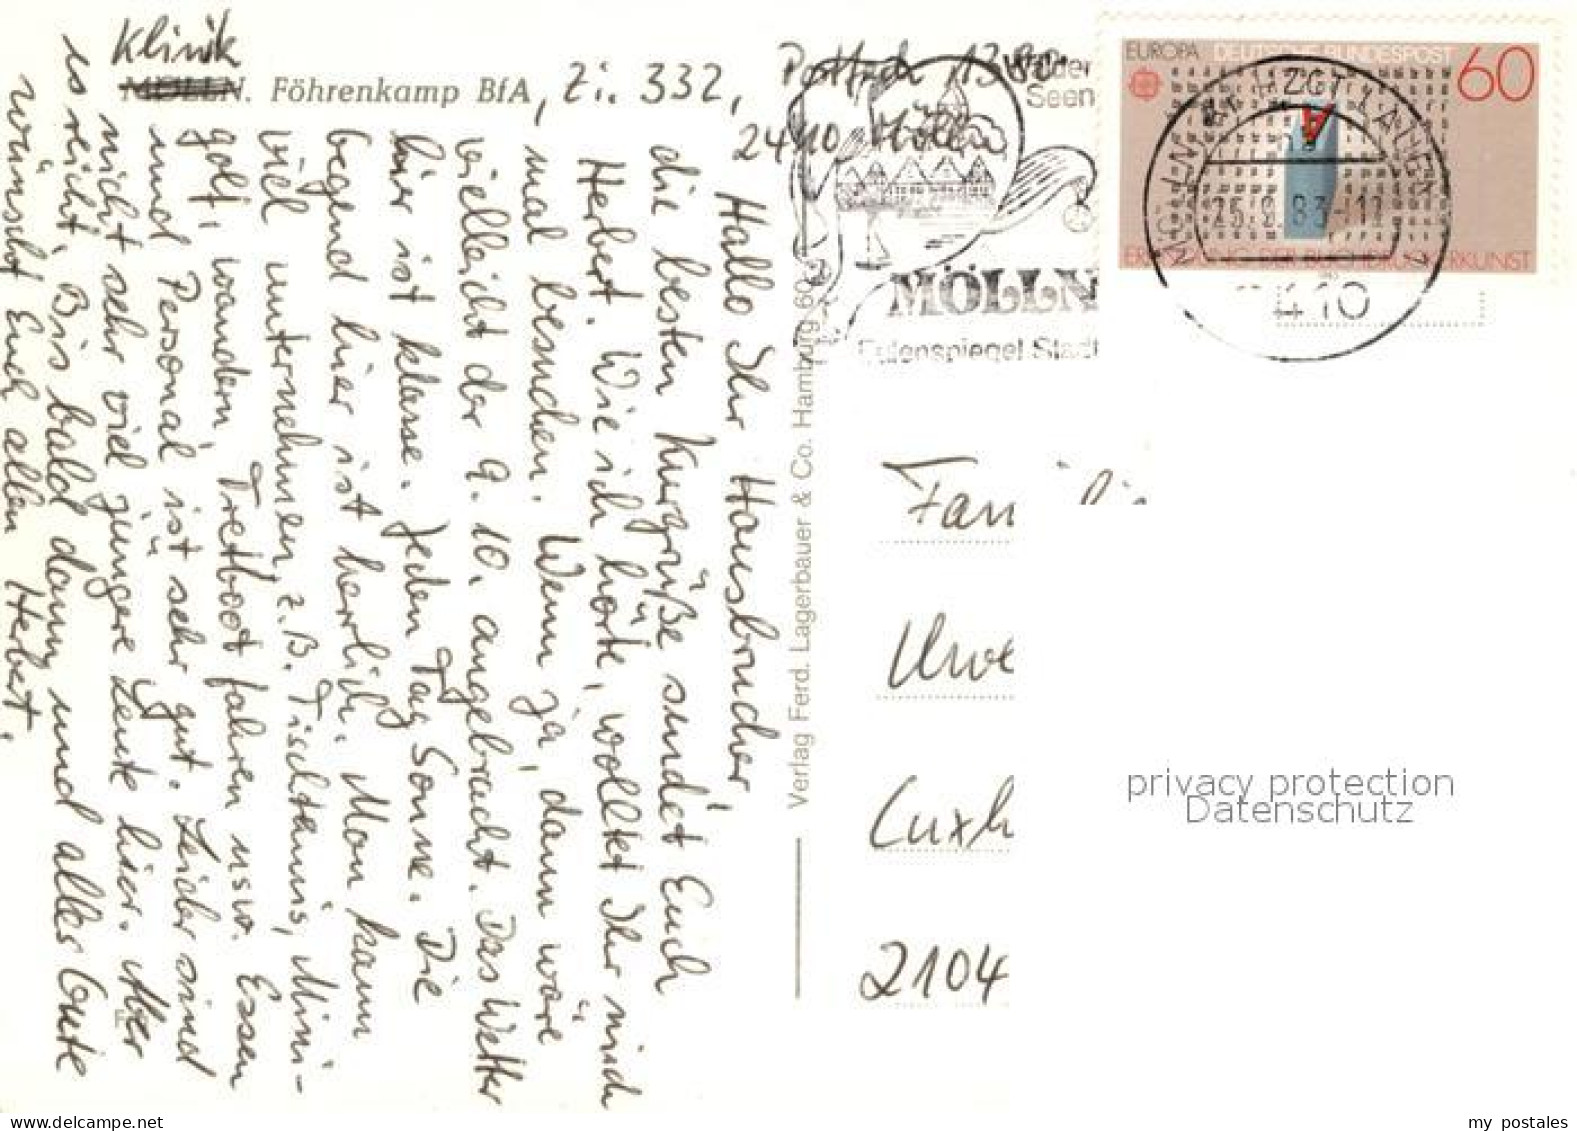 Klinik
MÖLLN. Föhrenkamp BfA, Zi. 332, Postfach 1380
2410 Mölln
Hallo Ihr Hausbrucher,
die besten Kurgrüße sendet Euch
Herbert. Wie ich hörte, wolltet Ihr mich
mal besuchen. Wenn ja, dann wäre
vielleicht der 9. 10. angebracht. Das Wetter
hier ist klasse. Jeden Tag Sonne. Die
Gegend hier ist herrlich. Man kann
viel unternehmen, z. B. Tischtennis, Mini-
golf, wandern, Tretboot fahren usw. Essen
und Personal ist sehr gut. Leider sind
nicht sehr viel jüngere Leute hier. Aber
es reicht. Bis bald dann, und alles Gute
wünscht Euch allen Herbert.
Verlag Ferd. Lagerbauer & Co. Hamburg 60
Seen
MÖLLN
Eulenspiegel Stadt
EUROPA DEUTSCHE BUNDESPOST
60
MÖLLN
83-11
2410
Fam
Uwe
Cuxh
2104
privacy protection
Datenschutz
my postales